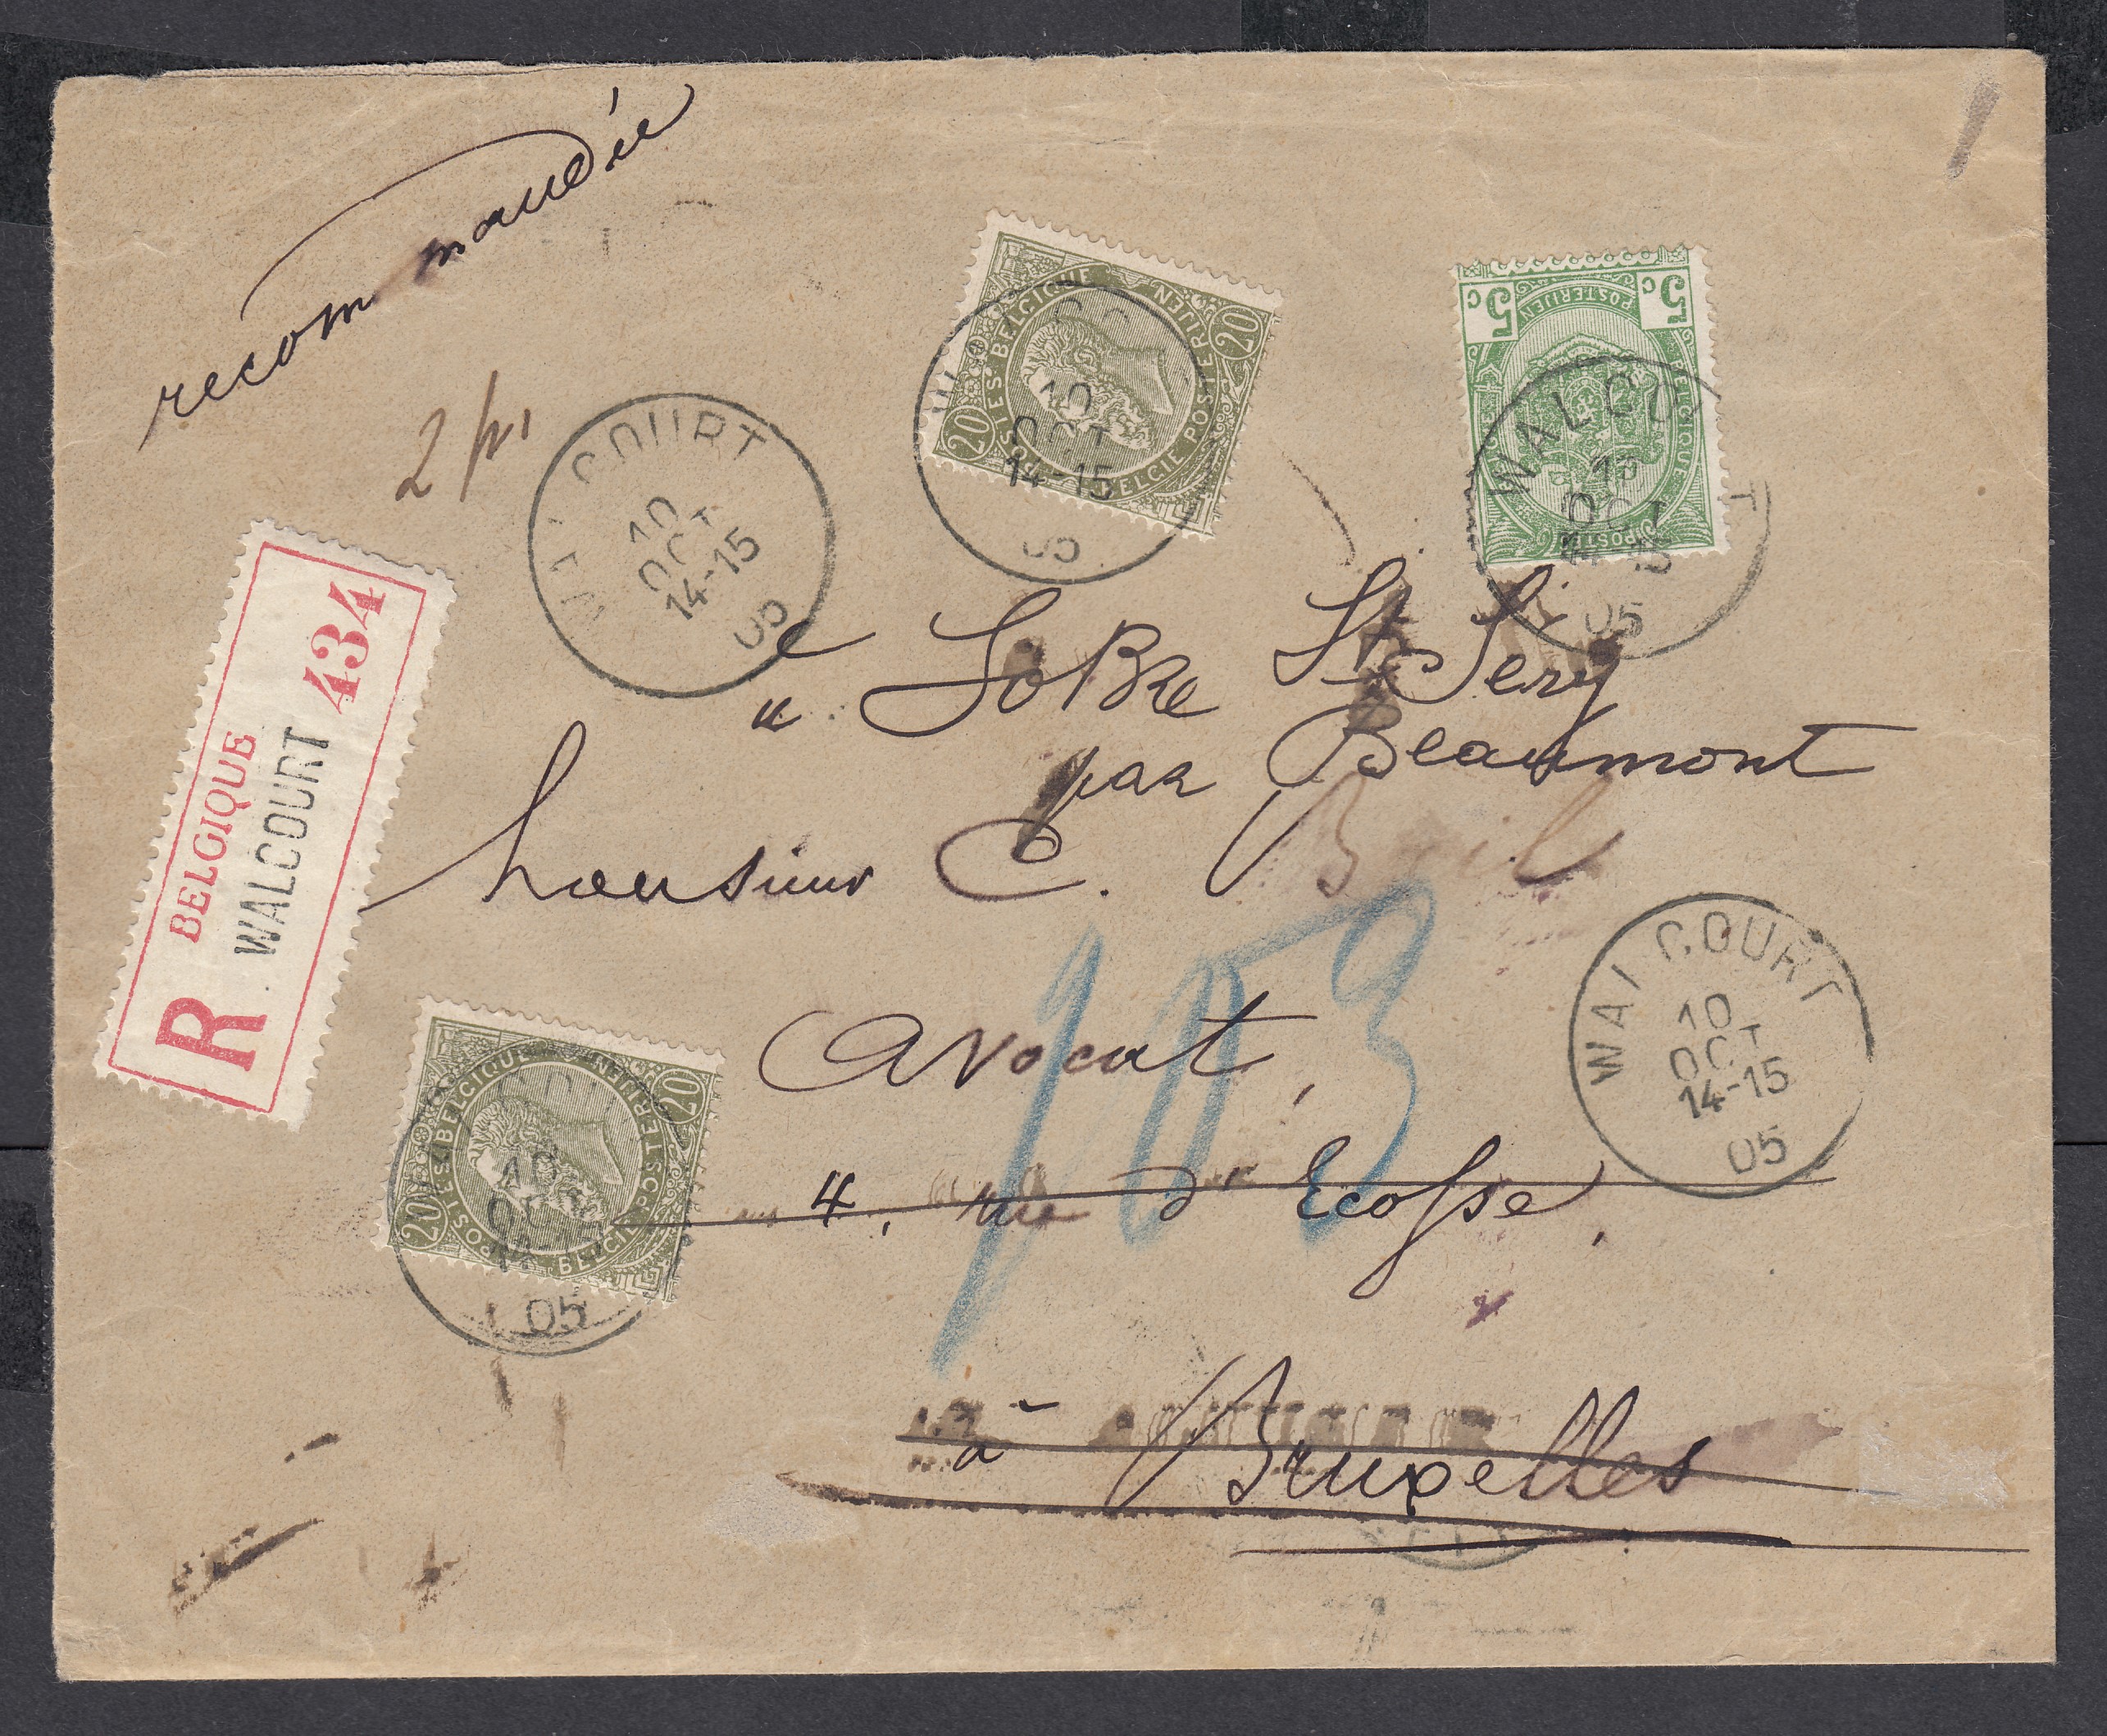 recommandée
20 POSTES BELGIQUE POSTERIJEN BELGIE 20
5c POSTERIJEN 5c
BELGIQUE
POSTES
WALCOURT
10
OCT
14-15
05
WALCOURT
10
OCT
14-15
05
WALCOURT
10
OCT
14-15
05
BELGIQUE 434
R WALCOURT
à Sobre St Gery
par Beaumont
Monsieur C. Bail
103
Avocat,
WALCOURT
10
OCT
14-15
05
20 POSTES BELGIQUE POSTERIJEN BELGIE 20
10
OCT
14-15
05
4, rue d'Ecosse,
à Bruxelles